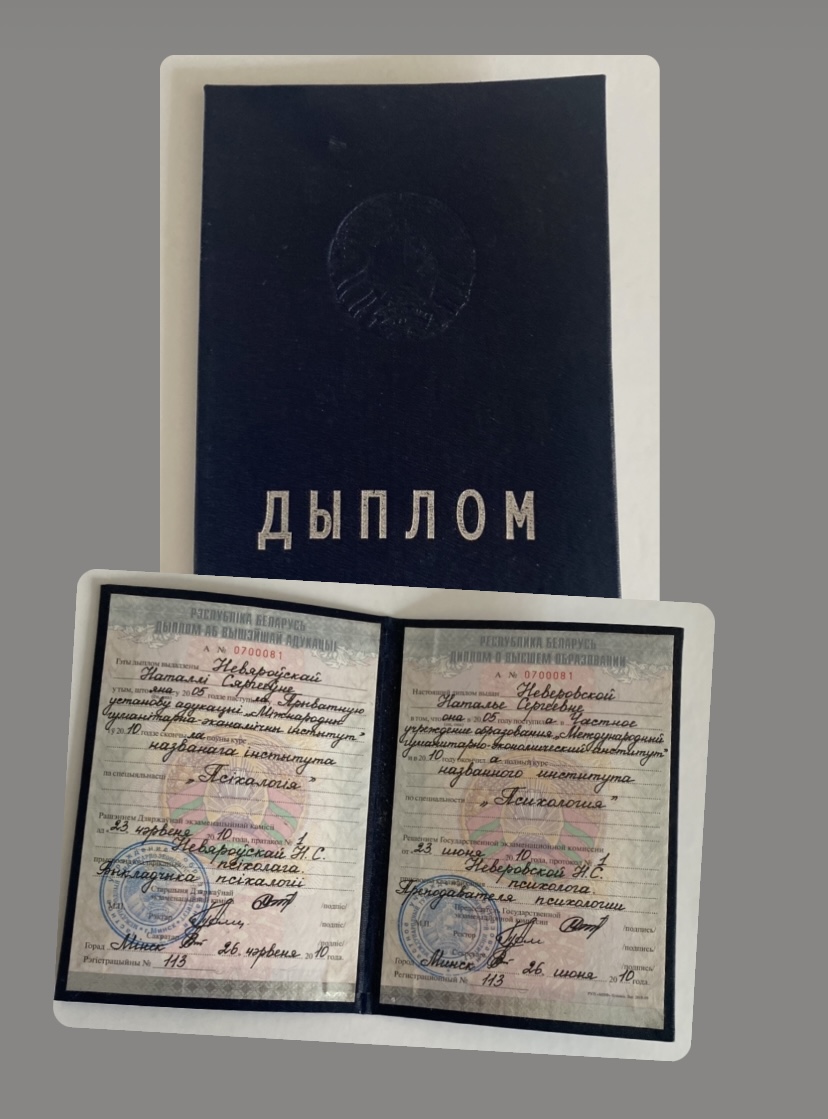 ДЫПЛОМ
РЭСПУБЛІКА БЕЛАРУСЬ
ДЫПЛОМ АБ ВЫШЭЙШАЙ АДУКАЦЫІ
А № 0700081
Гэты дыплом выдадзены Невяроўскай
Наталлі Сяргееўне
у тым, што яна у 2005 годзе паступіла Прыватную
установу адукацыі „Міжнародны
гуманітарна-эканамічны інстытут"
і ў 2010 годзе скончыла поўны курс
названага інстытута
па спецыяльнасці „Псіхалогія"
Рашэннем Дзяржаўнай экзаменацыйнай камісіі
ад 23 чэрвеня 2010 года, пратакол № 1
Невяроўскай Н.С.
псіхолага.
Выкладчыка псіхалогіі
Старшыня Дзяржаўнай
экзаменацыйнай камісіі /подпіс/
М.П. Рэктар /подпіс/
Сакратар /подпіс/
Горад Мінск 26 чэрвеня 2010 года.
Рэгістрацыйны № 113
РЕСПУБЛИКА БЕЛАРУСЬ
ДИПЛОМ О ВЫСШЕМ ОБРАЗОВАНИИ
А № 0700081
Настоящий диплом выдан Неверовской
Наталье Сергеевне
в том, что она в 2005 году поступила в Частное
учреждение образования „Международный
гуманитарно-экономический институт"
и в 2010 году окончила полный курс
названного института
по специальности „Психология"
Решением Государственной экзаменационной комиссии
от 23 июня 2010 года, протокол № 1
Неверовской Н.С.
психолога.
Преподавателя психологии
Председатель Государственной
экзаменационной комиссии /подпись/
М.П. Ректор /подпись/
Секретарь /подпись/
Город Минск 26 июня 2010 года.
Регистрационный № 113